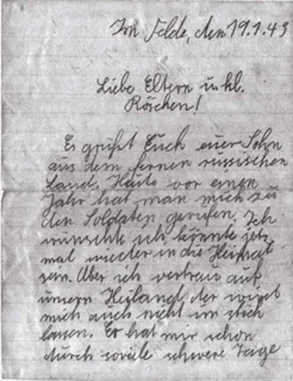 Im Felde, den 19.1.43
Liebe Eltern u. kl.
Röschen!
Es grüßt Euch euer Sohn
aus dem fernen russischen
Land. Heute vor einen
Jahr hat man mich zu
den Soldaten gerufen. Ich
wünschte ich könnte jetz
mal wiecher in die Heimat
sein. Aber ich vertrau auf
unsern Heiland, der wird
mich auch nicht im stich
lassen. Er hat mir schon
durch soviele schwere Tage